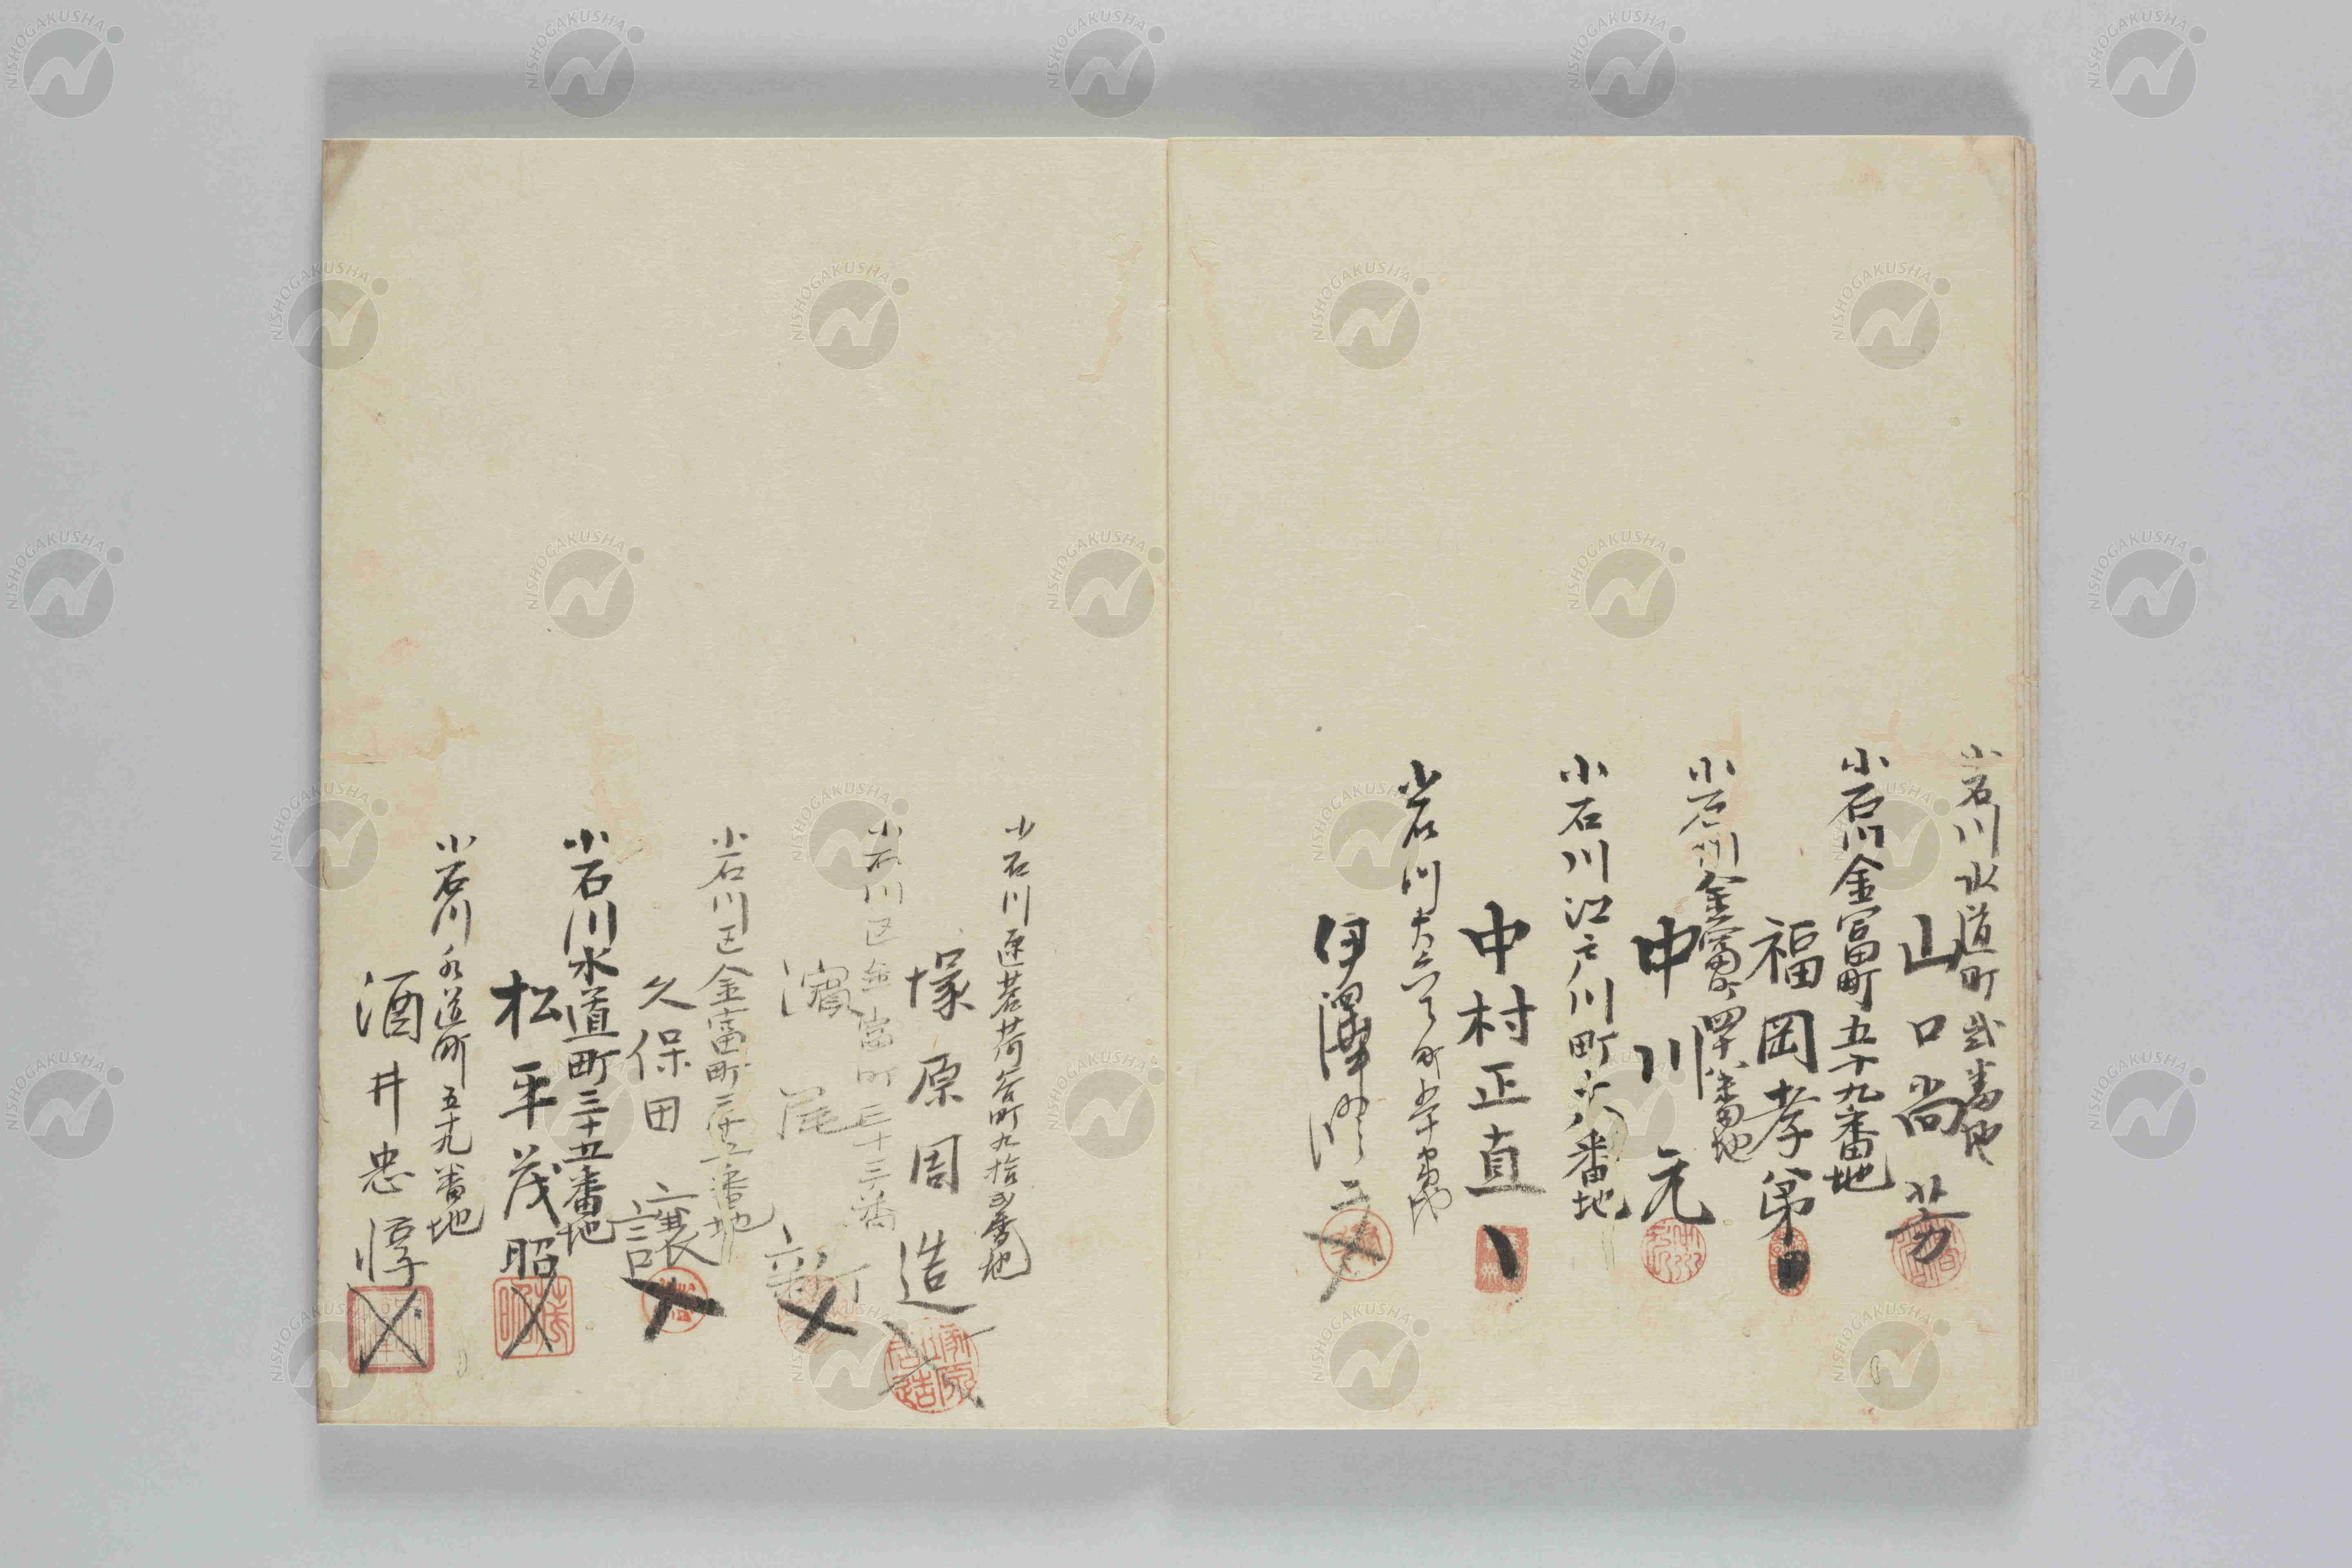 小石川水道町弐番地
山口尚芳
小石川金富町五十九番地
福岡孝弟
小石川金富町四十八番地
中川元
小石川江戸川町十八番地
中村正直
小石川大六天町五十番地
伊澤修二
小石川区茗荷谷町九拾弐番地
塚原周造
小石川区金富町三十三番
濵尾新
小石川区金富町三十五番地
久保田譲
小石川水道町三十五番地
松平茂昭
小石川水道町五十九番地
酒井忠惇
NISHOGAKUSHA